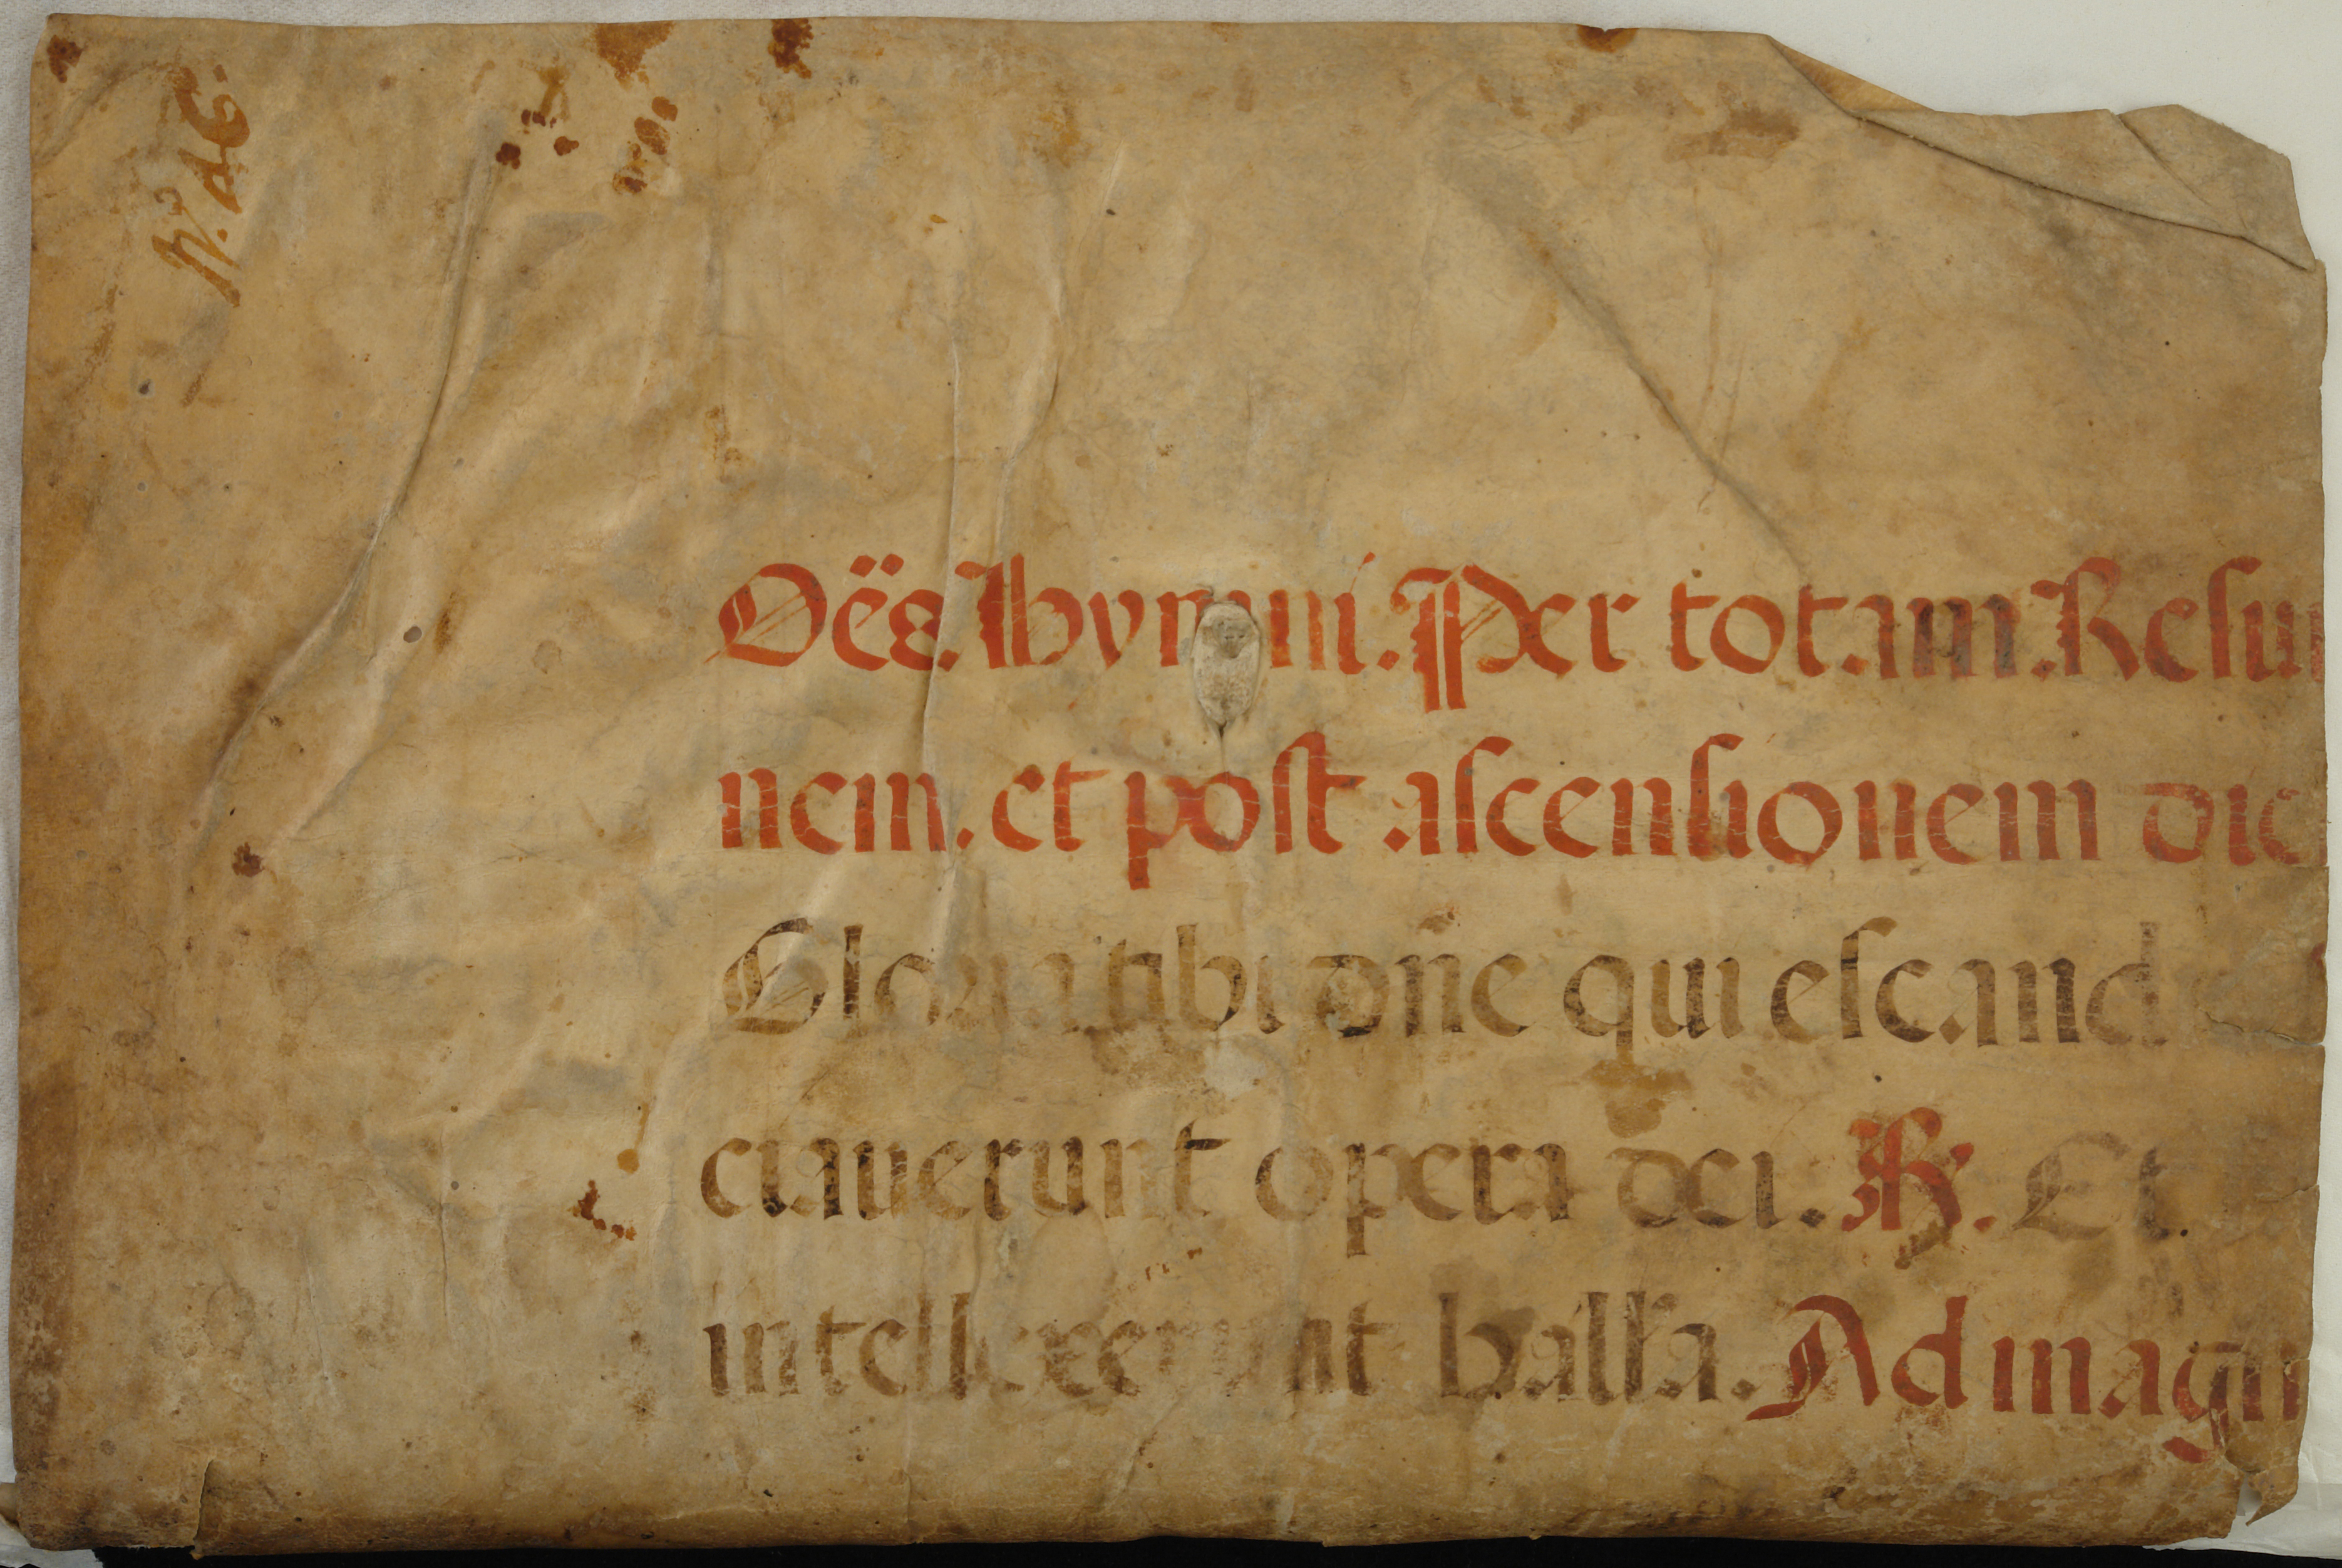 Oēs hymni. Per totam Resur
nem. et post ascensionem dic
Gloria tibi dn̄e qui escand
ciaverunt opera dei. ℟. Et
intellexerunt h. all'a. Ad magn